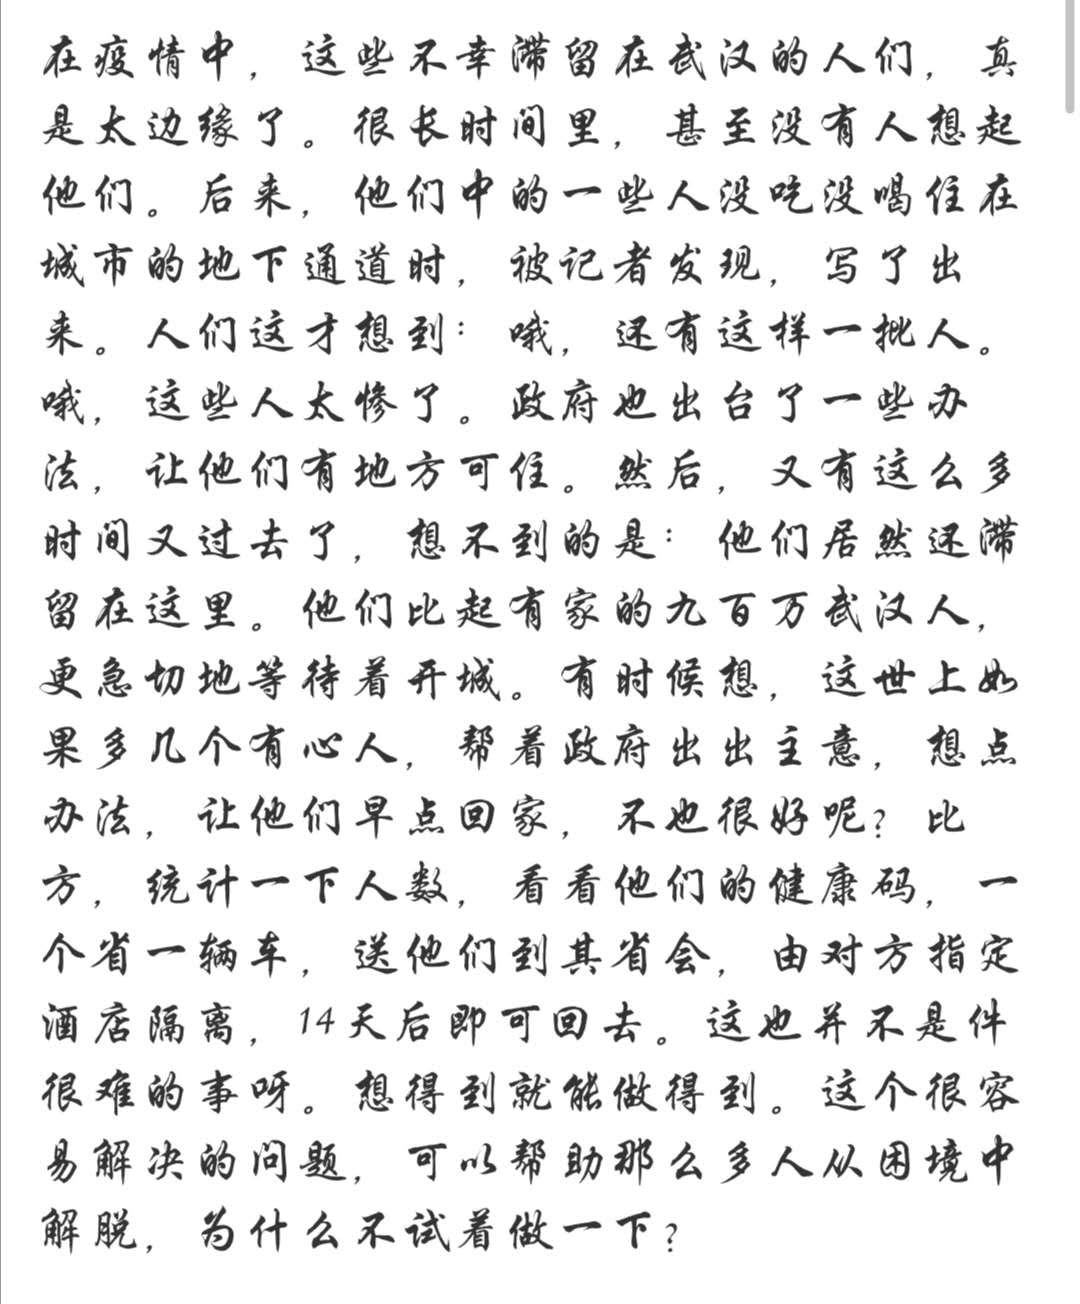 在疫情中，这些不幸滞留在武汉的人们，真
是太边缘了。很长时间里，甚至没有人想起
他们。后来，他们中的一些人没吃没喝住在
城市的地下通道时，被记者发现，写了出
来。人们这才想到：哦，还有这样一批人。
哦，这些人太惨了。政府也出台了一些办
法，让他们有地方可住。然后，又有这么多
时间又过去了，想不到的是：他们居然还滞
留在这里。他们比起有家的九百万武汉人，
更急切地等待着开城。有时候想，这世上如
果多几个有心人，帮着政府出出主意，想点
办法，让他们早点回家，不也很好呢？比
方，统计一下人数，看看他们的健康码，一
个省一辆车，送他们到其省会，由对方指定
酒店隔离，14天后即可回去。这也并不是件
很难的事呀。想得到就能做得到。这个很容
易解决的问题，可以帮助那么多人从困境中
解脱，为什么不试着做一下？